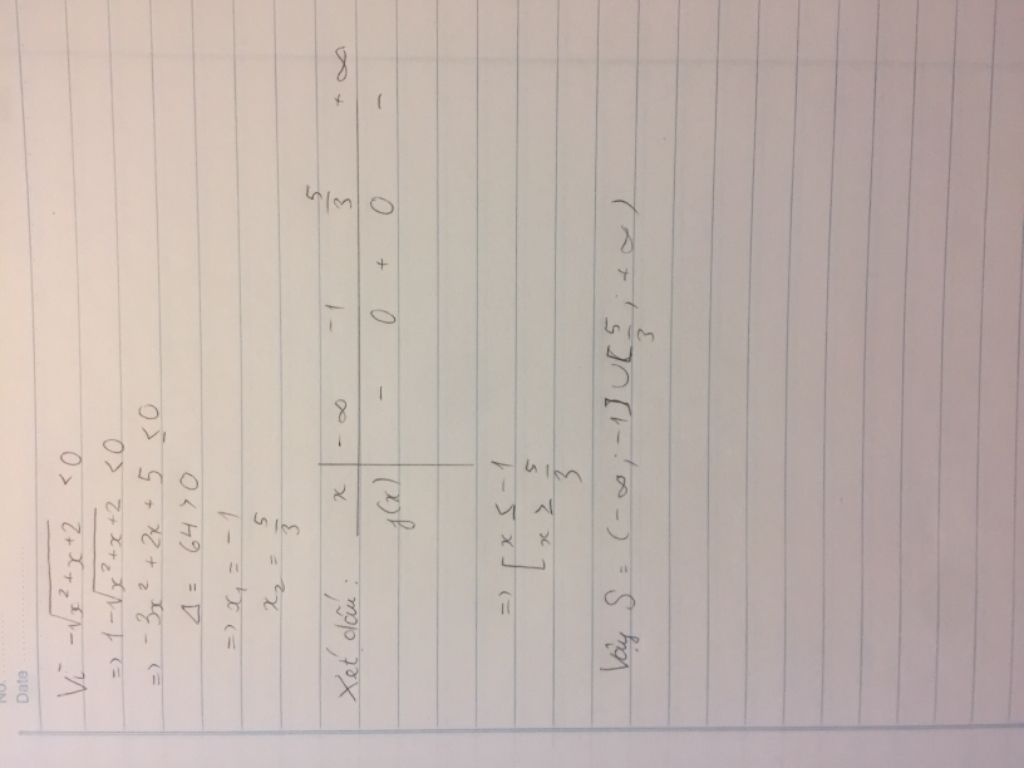 No.
Date
Vì -√(x²+x+2) < 0
=> 1-√(x²+x+2) < 0
=> -3x² + 2x + 5 ≤ 0
Δ = 64 > 0
=> x₁ = -1
x₂ = 5/3
Xét dấu:
x -∞ -1 5/3 +∞
f(x) - 0 + 0 -
=> [ x ≤ -1
x ≥ 5/3
Vậy S = (-∞; -1] ∪ [5/3; +∞)